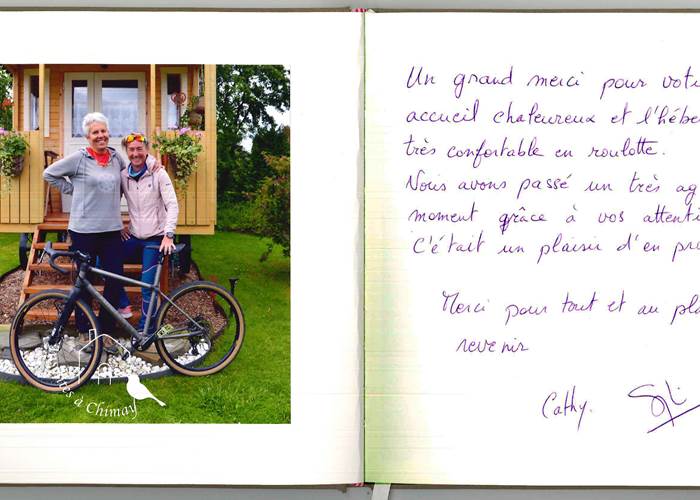 à Chimay
Un grand merci pour votr
accueil chaleureux et l'hébe
très confortable en roulotte.
Nous avons passé un très ag
moment grâce à vos attenti
C'était un plaisir d'en pr
Merci pour tout et au pla
revenir
Cathy.